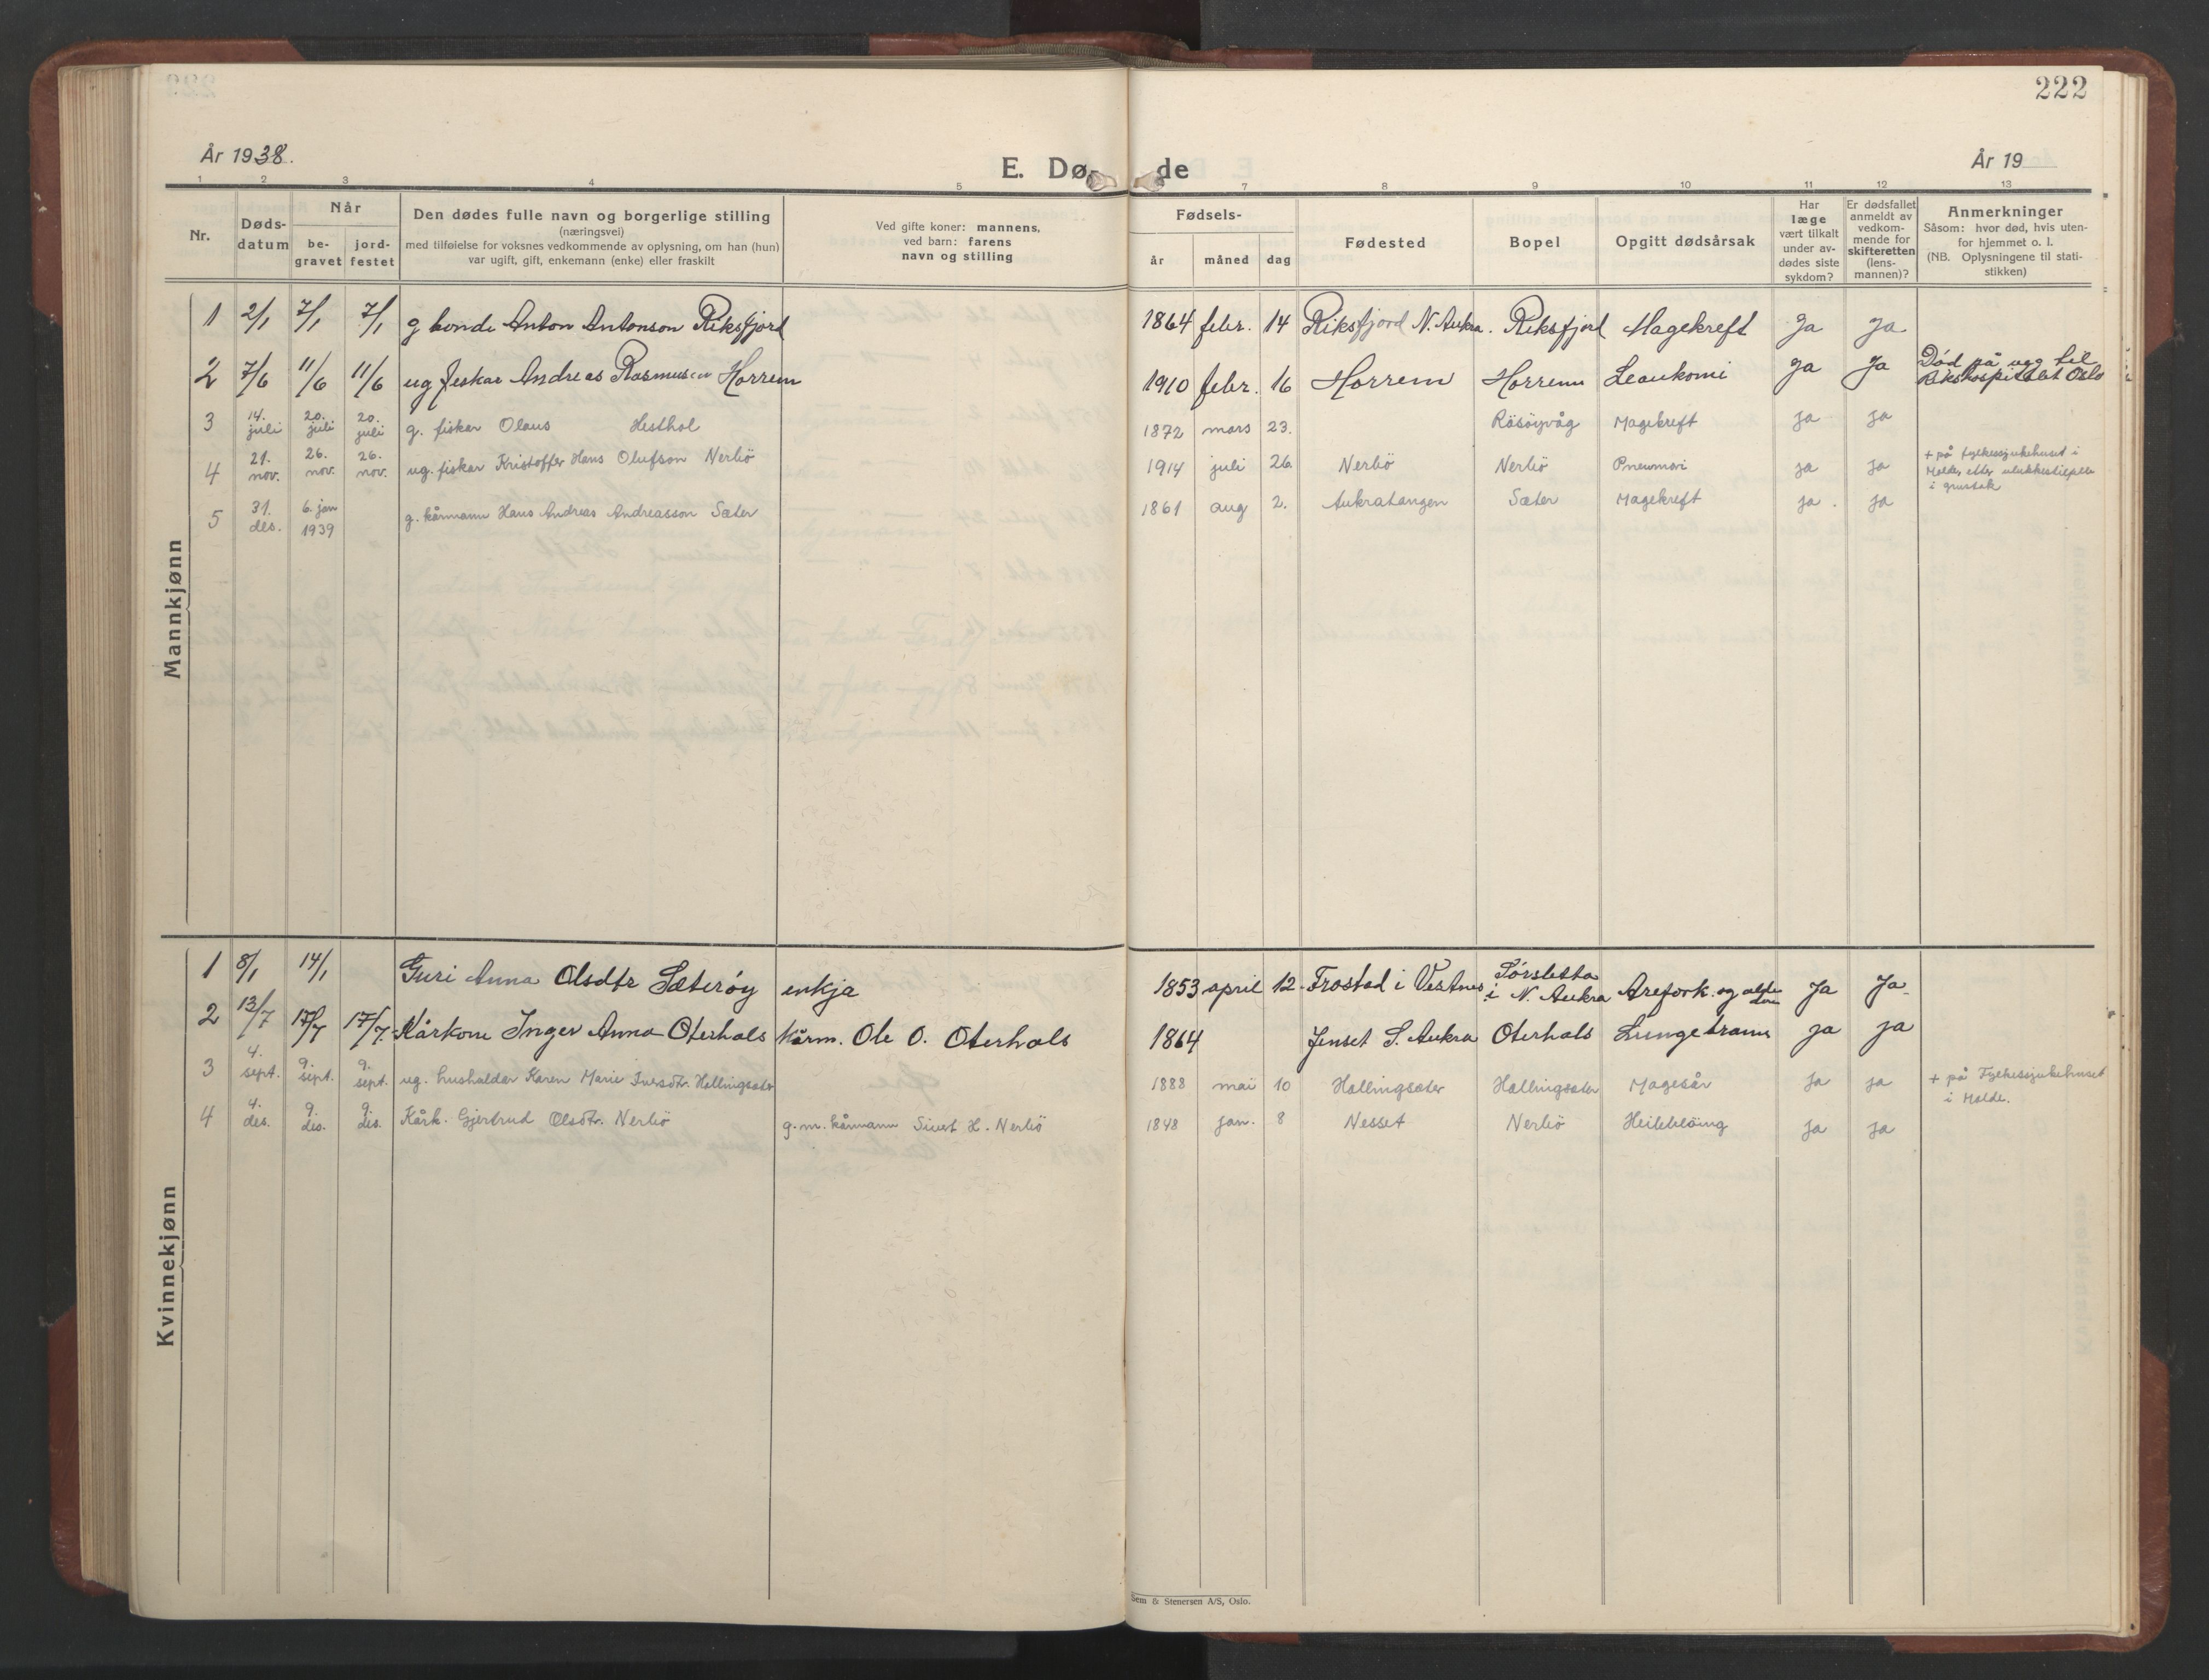 222
År 1938.
E. Døde
År 19
1 2 3 4 5 7 8 9 10 11 12 13
Nr.
Døds-
datum
Når
be-
gravet
jord-
festet
Den dødes fulle navn og borgerlige stilling
(næringsvei)
med tilføielse for voksnes vedkommende av oplysning, om han (hun)
var ugift, gift, enkemann (enke) eller fraskilt
Ved gifte koner: mannens,
ved barn: farens
navn og stilling
Fødsels-
år måned dag
Fødested
Bopel
Opgitt dødsårsak
Har
læge
vært tilkalt
under av-
dødes siste
sykdom?
Er dødsfallet
anmeldt av
vedkom-
mende for
skifteretten
(lens-
mannen)?
Anmerkninger
Såsom: hvor død, hvis uten-
for hjemmet o. l.
(NB. Oplysningene til stati-
stikken)
Mannkjønn
1 2/1 7/1 7/1 g bonde Anton Antonson Riksfjord 1864 febr. 14 Riksfjord N. Aukra. Riksfjord Magekreft Ja Ja
2 7/6 11/6 11/6 ug fiskar Andreas Rasmussen Horrem 1910 febr. 16 Horrem Horrem Leaukomi Ja Ja Død på veg til
Rikshospitalet Oslo
3 14. juli 20. juli 20. juli g. fiskar Olaus Hesthol 1872 mars 23. Räsöyvåg Magekreft ja ja
4 21. nov. 26. nov. 26. nov. ug. fiskar Kristoffer Hans Olufson Nerbö 1914 juli 26. Nerbö Nerbö Pneumoni ja ja + på fylkessjukehuset i
Molde, etter ulukkestilfelle
i grustak
5 31. des. 6. jan 1939 g. kårmann Hans Andreas Andreasson Sæter 1861 aug 2. Aukratangen Sæter Magekreft ja. ja
Kvinnekjønn
1 8/1 14/1 Guri Anna Olsdtr Sæterøy enkja 1853 april 12 Frostad i Vestnes Sørsletta
i N. Aukra Arefork. og alder
dom Ja Ja
2 13/7 17/7 17/7 Kårkone Inger Anna Oterhals Kårm. Ole O. Oterhals 1864 Jenset S. Aukra Oterhals Lungebram Ja Ja
3 4. sept. 9. sept. 9. sept. ug. husholdar Karen Marie Iversdtr. Hallingsæter 1888 mai 10 Hallingsæter Hallingsæter Magesår Ja ja + på Fylkessjukehuset
i Molde.
4 4. des. 9. des. 9. des. Kårk. Gjertrud Olsdtr. Nerbö g.m. kårmann Sivert H. Nerbö 1848 jan. 8 Nesset Nerbö Heilebløing ja ja
Sem & Stenersen A/S, Oslo.